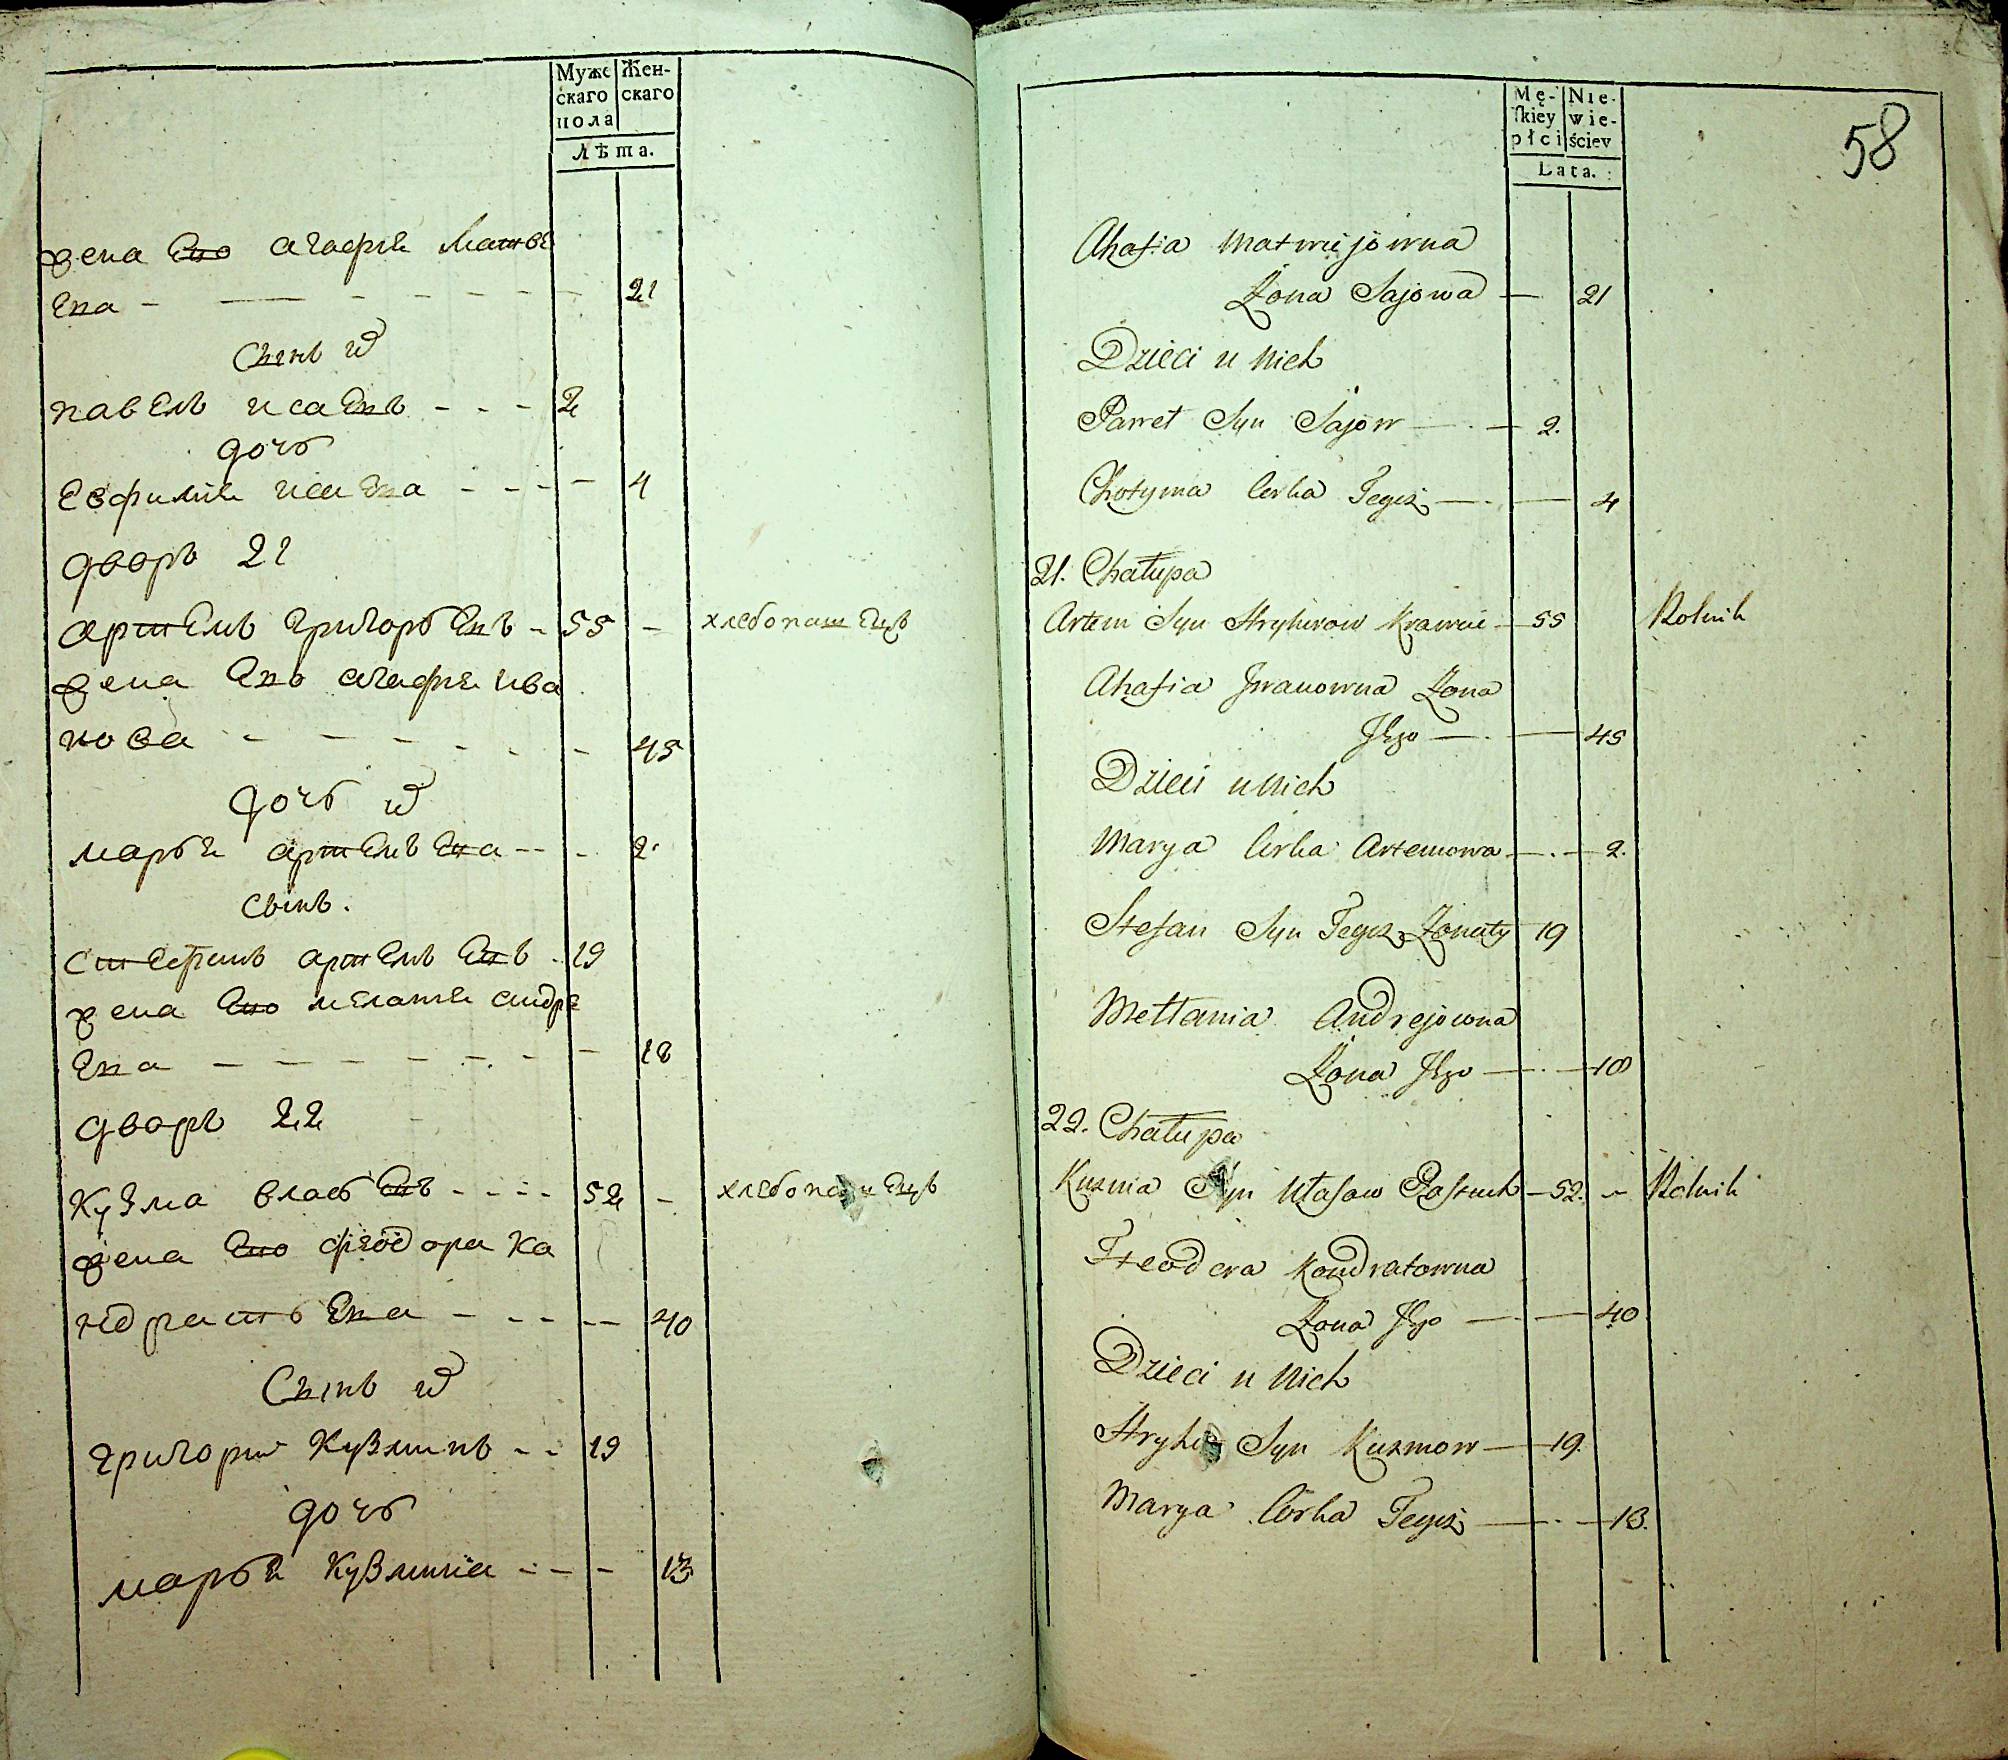 Муже
скаго
пола
Жен-
скаго
лѣта.
жена Ево агафия Матвѣ
Ева - - - - - 21
Сынъ их
павелъ исаевъ - - - 2
дочь
евфимия исаева - - - - 4
дворъ 21
артемъ григорьевъ - 55 - хлебопашецъ
жена Ево агафия ива
нова - - - - - 45
дочь их
марья артемьева - - - 2
сынъ.
степанъ артемьевъ - 19
жена Ево мелания андре
Ева - - - - - 18
дворъ 22
Кузма власьевъ - - - - 52 - хлебопашецъ
жена Ево феодора ко
ндратьева - - - - - 40
Сынъ их
григории Кузминъ - - 19
дочь
марья Кузмина - - - - 13
58
Mę-
skiey
płci
Nie-
wie-
ściey
Lata.
Ahafia Matwiejowna
Żona Jsajowa — 21
Dzieci u Nich
Paweł Syn Jsajow — 2.
Chotyma Corka Tegoż — 4
21. Chałupa
Artem Syn Hryhorow Krawiec — 55 Rolnik
Ahafia Jwanowna Żona
Jego — 45
Dzieci u Nich
Marya Corka Artemowa — 2.
Stefan Syn Tegoż Żonaty 19
Mełania Andrejowna
Żona Jego — 18
22. Chałupa
Kuzma Syn Ułasow Pastuch — 52. — Rolnik
Fteodora Kondratowna
Żona Jego — 40
Dzieci u Nich
Hryhor Syn Kuzmow — 19.
Marya Corka Tegoż — 13.